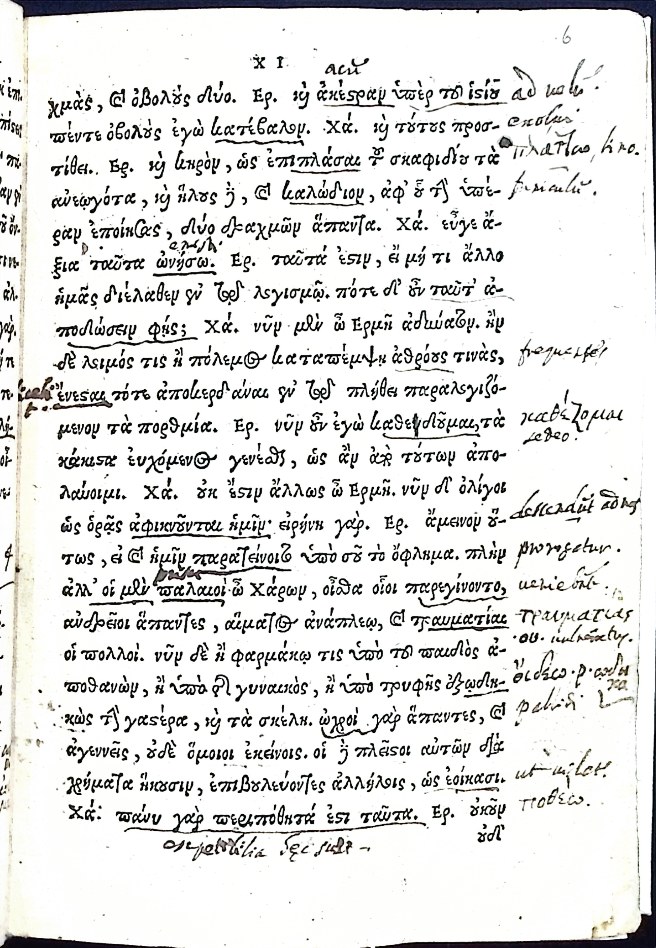 6
XI
χμὰς, καὶ ὀβολοὺς δύο. Ερ. καὶ ἀκέστραν ὑπὲρ τοῦ ἱστίου
πέντε ὀβολοὺς ἐγὼ κατέβαλον. Χά. καὶ τούτους προσ-
τίθει. Ερ. καὶ κηρὸν, ὡς ἐπιπλάσαι τοῦ σκαφιδίου τὰ
ἀνεῳγότα, καὶ ἥλους δὲ, καὶ καλώδιον, ἀφ' οὗ τὴν ὑπέ-
ραν ἐποίησας, δύο δραχμῶν ἅπαντα. Χά. εὖγε ἄ-
ξια ταῦτα ὠνήσω. Ερ. ταῦτά ἐστιν, εἴ μή τι ἄλλο
ἡμᾶς διέλαθεν ἐν τῷ λογισμῷ. πότε δ' οὖν ταῦτ' ἀ-
ποδώσειν φής; Χά. νῦν μὲν ὦ Ερμῆ ἀδύνατον. ἢν
δὲ λοιμός τις ἢ πόλεμος καταπέμψῃ ἀθρόους τινὰς, frequentes
ἔνεσται τότε ἀποκερδάναι ἐν τῷ πλήθει παραλογιζό-
μενον τὰ πορθμία. Ερ. νῦν οὖν ἐγὼ καθεδοῦμαι, τὰ καθέζομαι
κάκιστα εὐχόμενος γενέσθαι, ὡς ἂν ἀπὸ τούτων ἀπο- sedeo.
λαύοιμι. Χά. οὐκ ἔστιν ἄλλως ὦ Ερμῆ. νῦν δ' ὀλίγοι
ὡς ὁρᾷς ἀφικνοῦνται ἡμῖν· εἰρήνη γάρ. Ερ. ἄμεινον οὕ-
τως, εἰ καὶ ἡμῖν παρατείνοιτο ὑπὸ σοῦ τὸ ὄφλημα. πλὴν
ἀλλ' οἱ μὲν παλαιοὶ ὦ Χάρων, οἶσθα οἷοι παρεγίνοντο,
ἀνδρεῖοι ἅπαντες, αἵματος ἀνάπλεῳ, καὶ τραυματίαι τραυματίας
οἱ πολλοί. νῦν δὲ ἢ φαρμάκῳ τις ὑπὸ τοῦ παιδὸς ἀ-
ποθανὼν, ἢ ὑπὸ τῆς γυναικὸς, ἢ ὑπὸ τρυφῆς ἐξῳδη-
κὼς τὴν γαστέρα, καὶ τὰ σκέλη. ὠχροὶ γὰρ ἅπαντες, καὶ
ἀγεννεῖς, οὐδὲ ὅμοιοι ἐκείνοις. οἱ δὲ πλεῖστοι αὐτῶν διὰ
χρήματα ἥκουσιν, ἐπιβουλεύοντες ἀλλήλοις, ὡς ἐοίκασι.
Χά. πάνυ γὰρ περιπόθητά ἐστι ταῦτα. Ερ. οὐκοῦν ποθέω.
οὐδ'